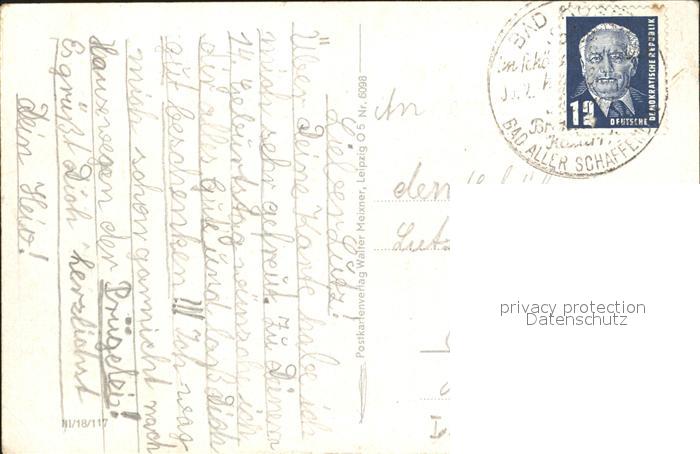 Lieber Lutz!
Über Deine Karte habe ich
mich sehr gefreut. Zu Deinem
14. Geburtstag wünsche ich
dir alles Gute und laß Dich
gut beschenken!!! Ich mag
mich schon garnicht nach
Hause wegen der Prügelei!
Es grüßt Dich herzlichst
Dein Heio!
III/18/117
Postkartenverlag Walter Meixner, Leipzig O 5 Nr. 6098
An
den
Lutz
BAD
BAD ALLER SCHAFFEN
12
DEUTSCHE
DEMOKRATISCHE REPUBLIK
privacy protection
Datenschutz